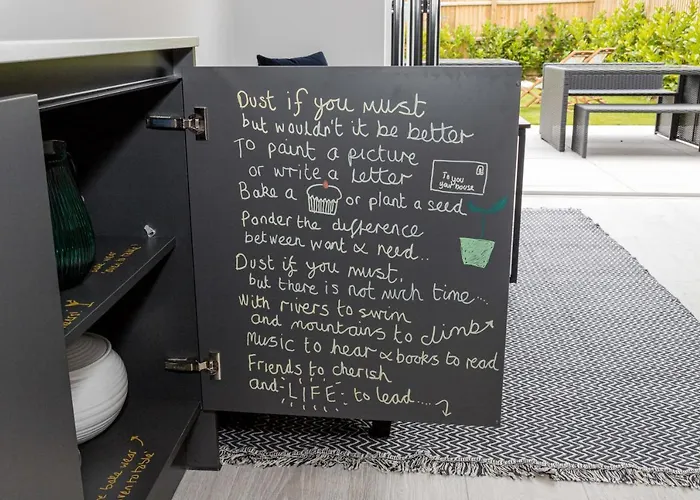 Dust if you must
but wouldn't it be better
To paint a picture
or write a letter
To you
your house
Bake a or plant a seed
Ponder the difference
between want & need..
Dust if you must,
but there is not much time...
With rivers to swim
and mountains to climb
Music to hear & books to read
Friends to cherish
and LIFE to lead.....
bake wear